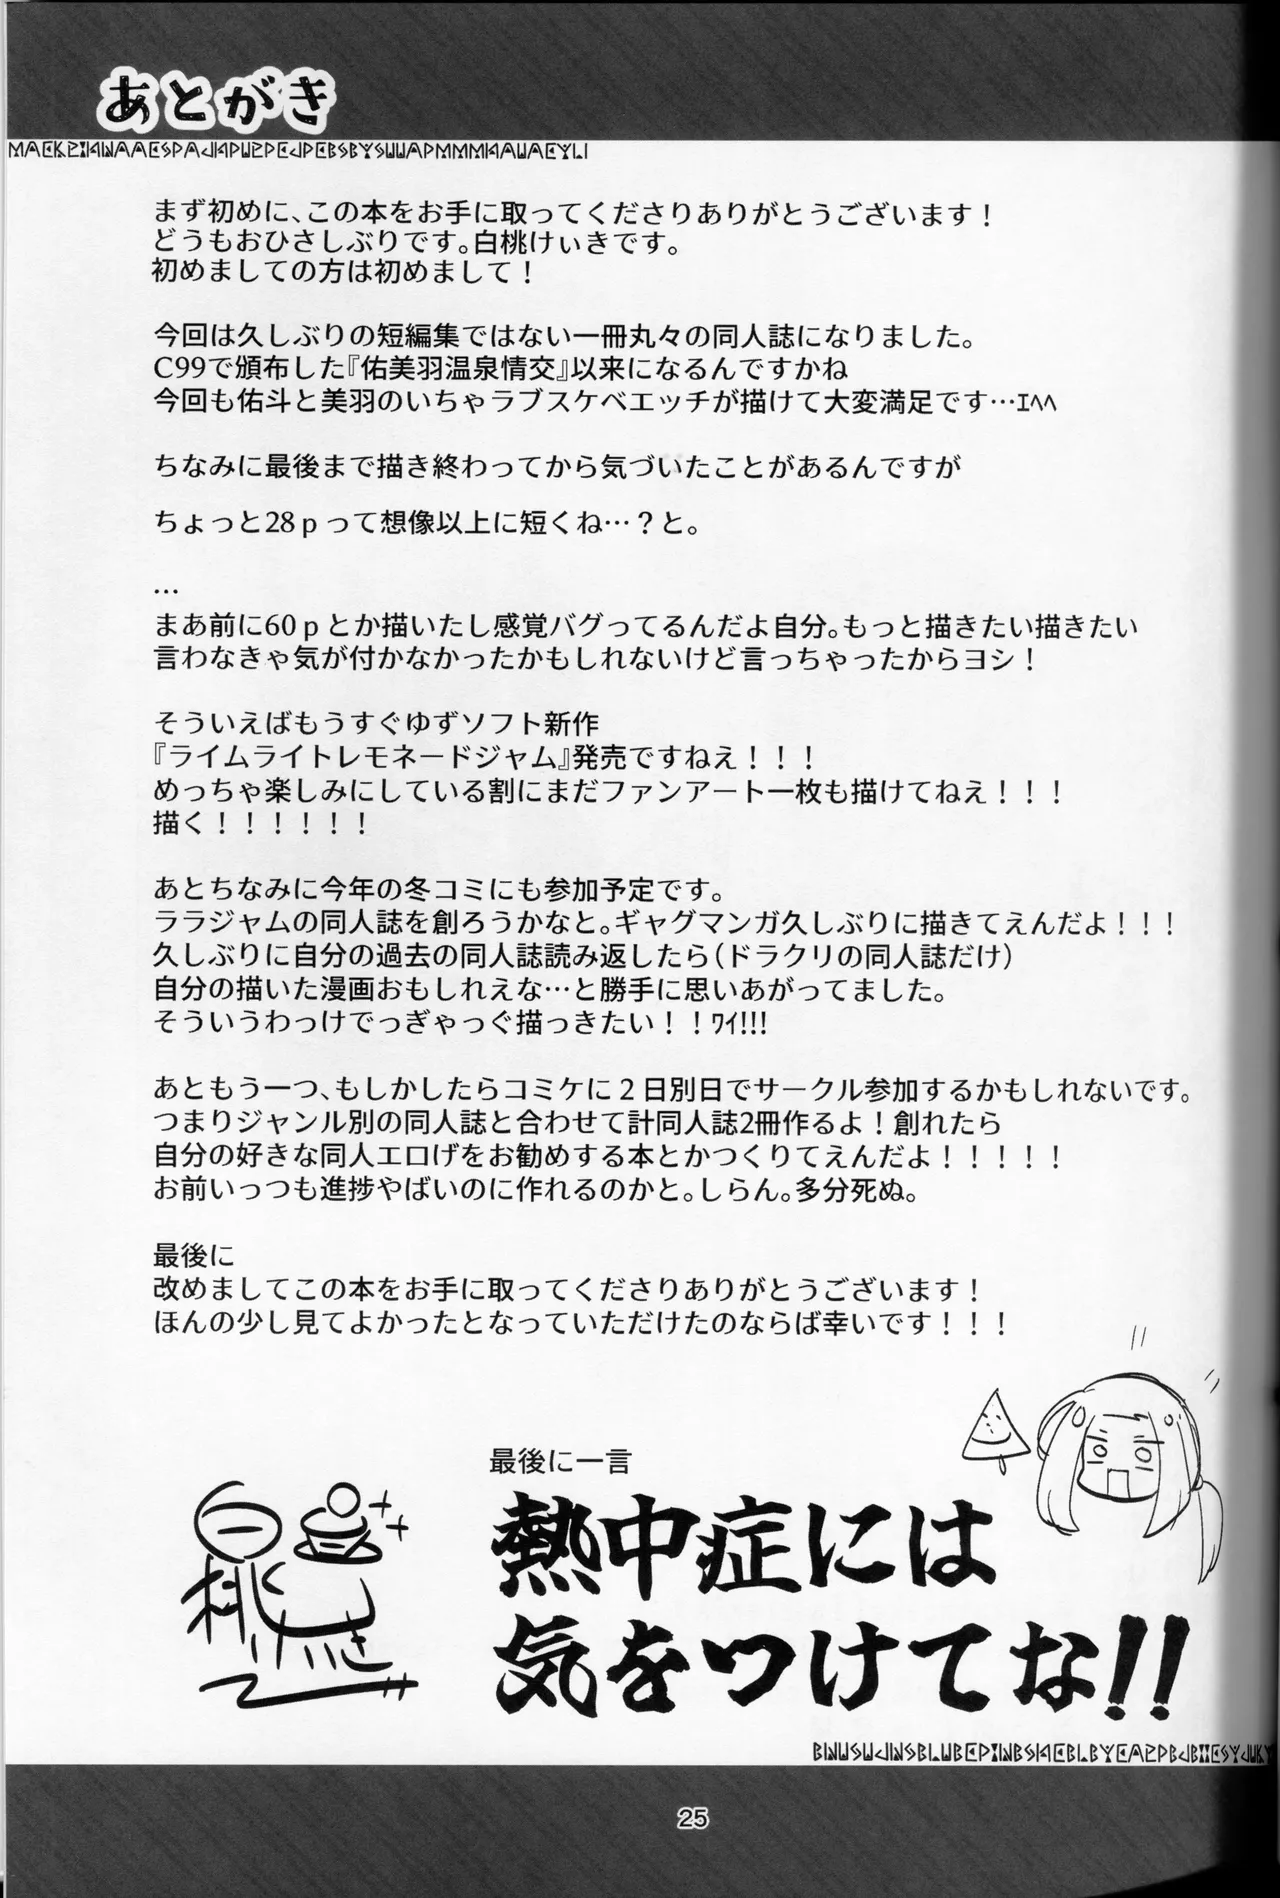 あとがき
まず初めに、この本をお手に取ってくださりありがとうございます！
どうもおひさしぶりです。白桃けぃきです。
初めましての方は初めまして！
今回は久しぶりの短編集ではない一冊丸々の同人誌になりました。
C99で頒布した『佑美羽温泉情交』以来になるんですかね
今回も佑斗と美羽のいちゃラブスケベエッチが描けて大変満足です…ｴﾍﾍ
ちなみに最後まで描き終わってから気づいたことがあるんですが
ちょっと28ｐって想像以上に短くね…？と。
…
まあ前に60ｐとか描いたし感覚バグってるんだよ自分。もっと描きたい描きたい
言わなきゃ気が付かなかったかもしれないけど言っちゃったからヨシ！
そういえばもうすぐゆずソフト新作
『ライムライトレモネードジャム』発売ですねえ！！！
めっちゃ楽しみにしている割にまだファンアート一枚も描けてねえ！！！
描く！！！！！！
あとちなみに今年の冬コミにも参加予定です。
ララジャムの同人誌を創ろうかなと。ギャグマンガ久しぶりに描きてえんだよ！！！
久しぶりに自分の過去の同人誌読み返したら（ドラクリの同人誌だけ）
自分の描いた漫画おもしれえな…と勝手に思いあがってました。
そういうわっけでっぎゃっぐ描っきたい！！ﾜｲ!!!
あともう一つ、もしかしたらコミケに２日別日でサークル参加するかもしれないです。
つまりジャンル別の同人誌と合わせて計同人誌2冊作るよ！創れたら
自分の好きな同人エロげをお勧めする本とかつくりてえんだよ！！！！！
お前いっつも進捗やばいのに作れるのかと。しらん。多分死ぬ。
最後に
改めましてこの本をお手に取ってくださりありがとうございます！
ほんの少し見てよかったとなっていただけたのならば幸いです！！！
最後に一言
熱中症には
気をつけてな!!
白桃けぃき
25